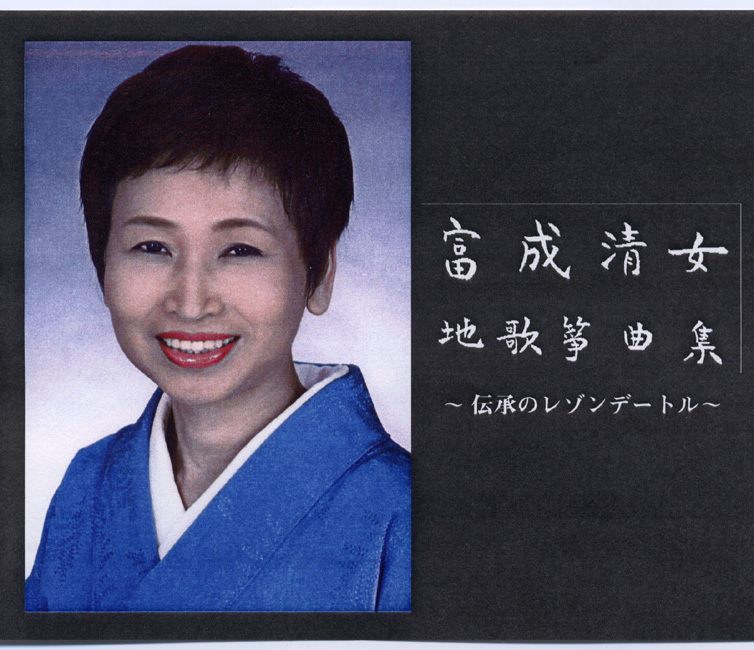 富成清女
地歌箏曲集
～伝承のレゾンデートル～